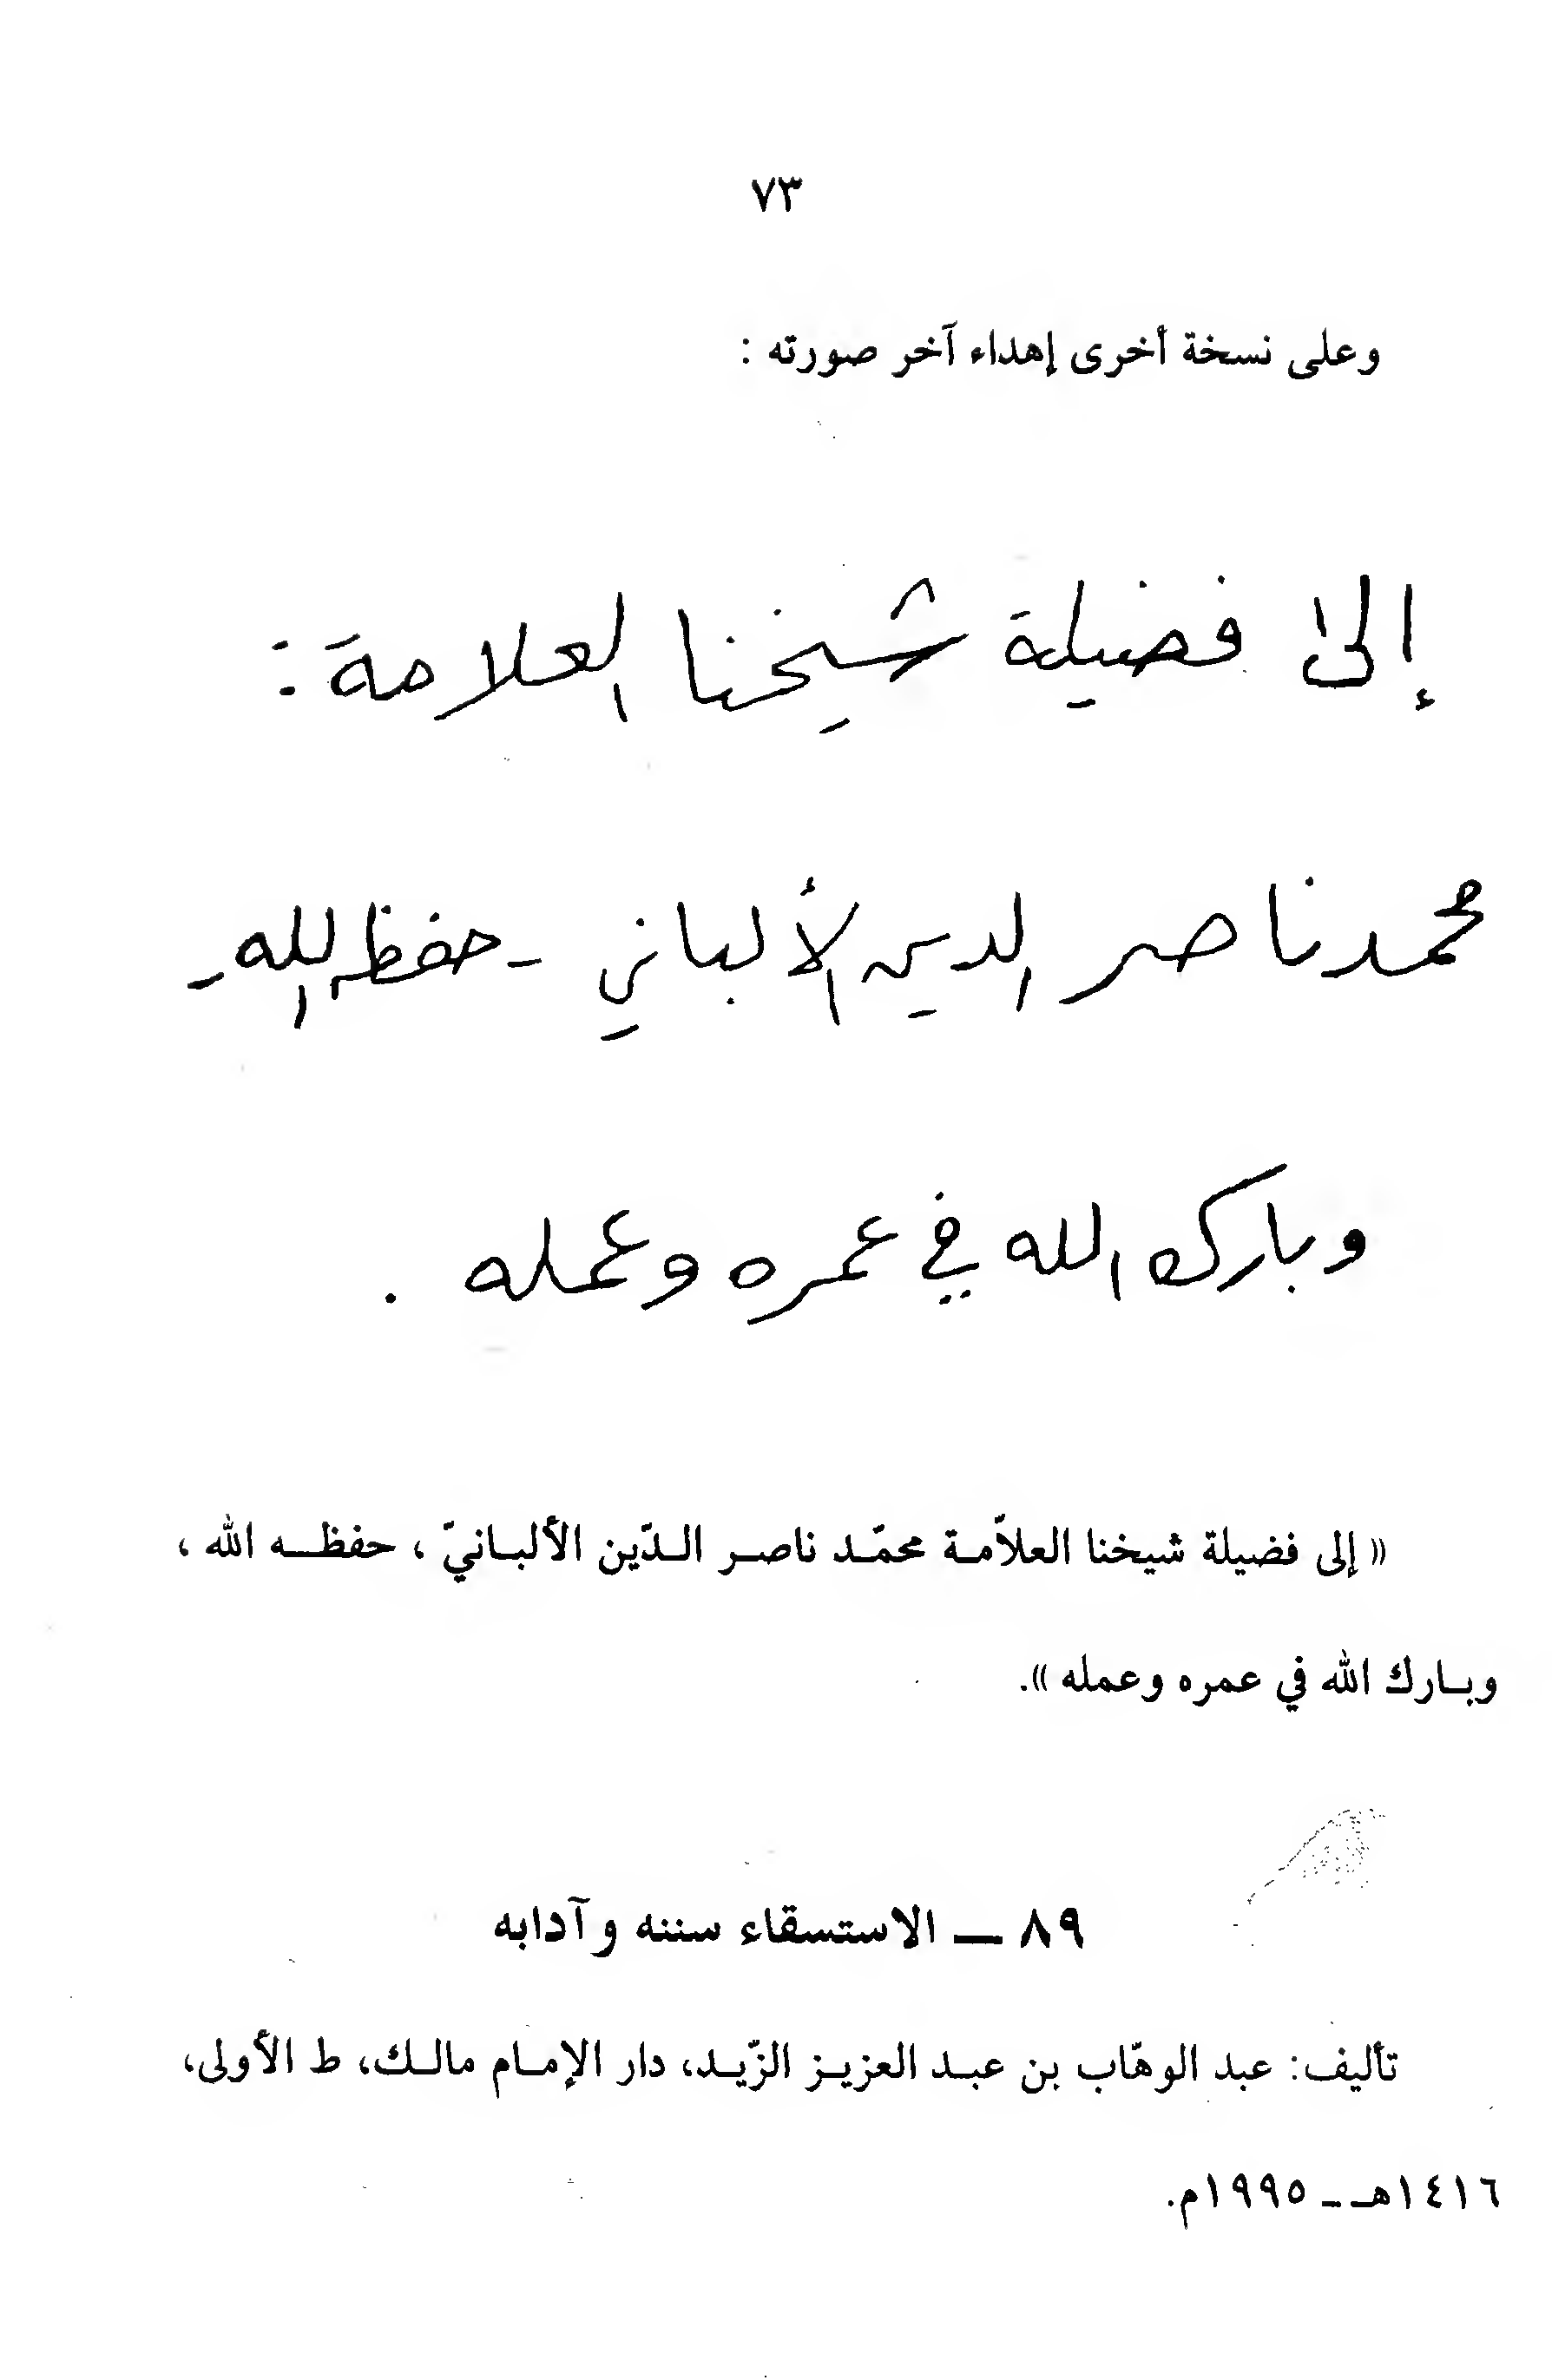 ٧٣
وعلى نسخة أخرى إهداء آخر صورته :
إلى فضيلة شيخنا العلامة :
محمد ناصر الدين الألباني - حفظه الله -
وبارك الله في عمره وعمله .
« إلى فضيلة شيخنا العلاّمـة محمّـد ناصـر الـدّين الألبـانيّ ، حفظـه الله ،
وبـارك الله في عمره وعمله ».
٨٩ ــ الاستسقاء سننه وآدابه
تأليف: عبد الوهّاب بن عبـد العزيـز الزّيـد، دار الإمـام مالـك، ط الأولى،
١٤١٦هـ ــ ١٩٩٥م.